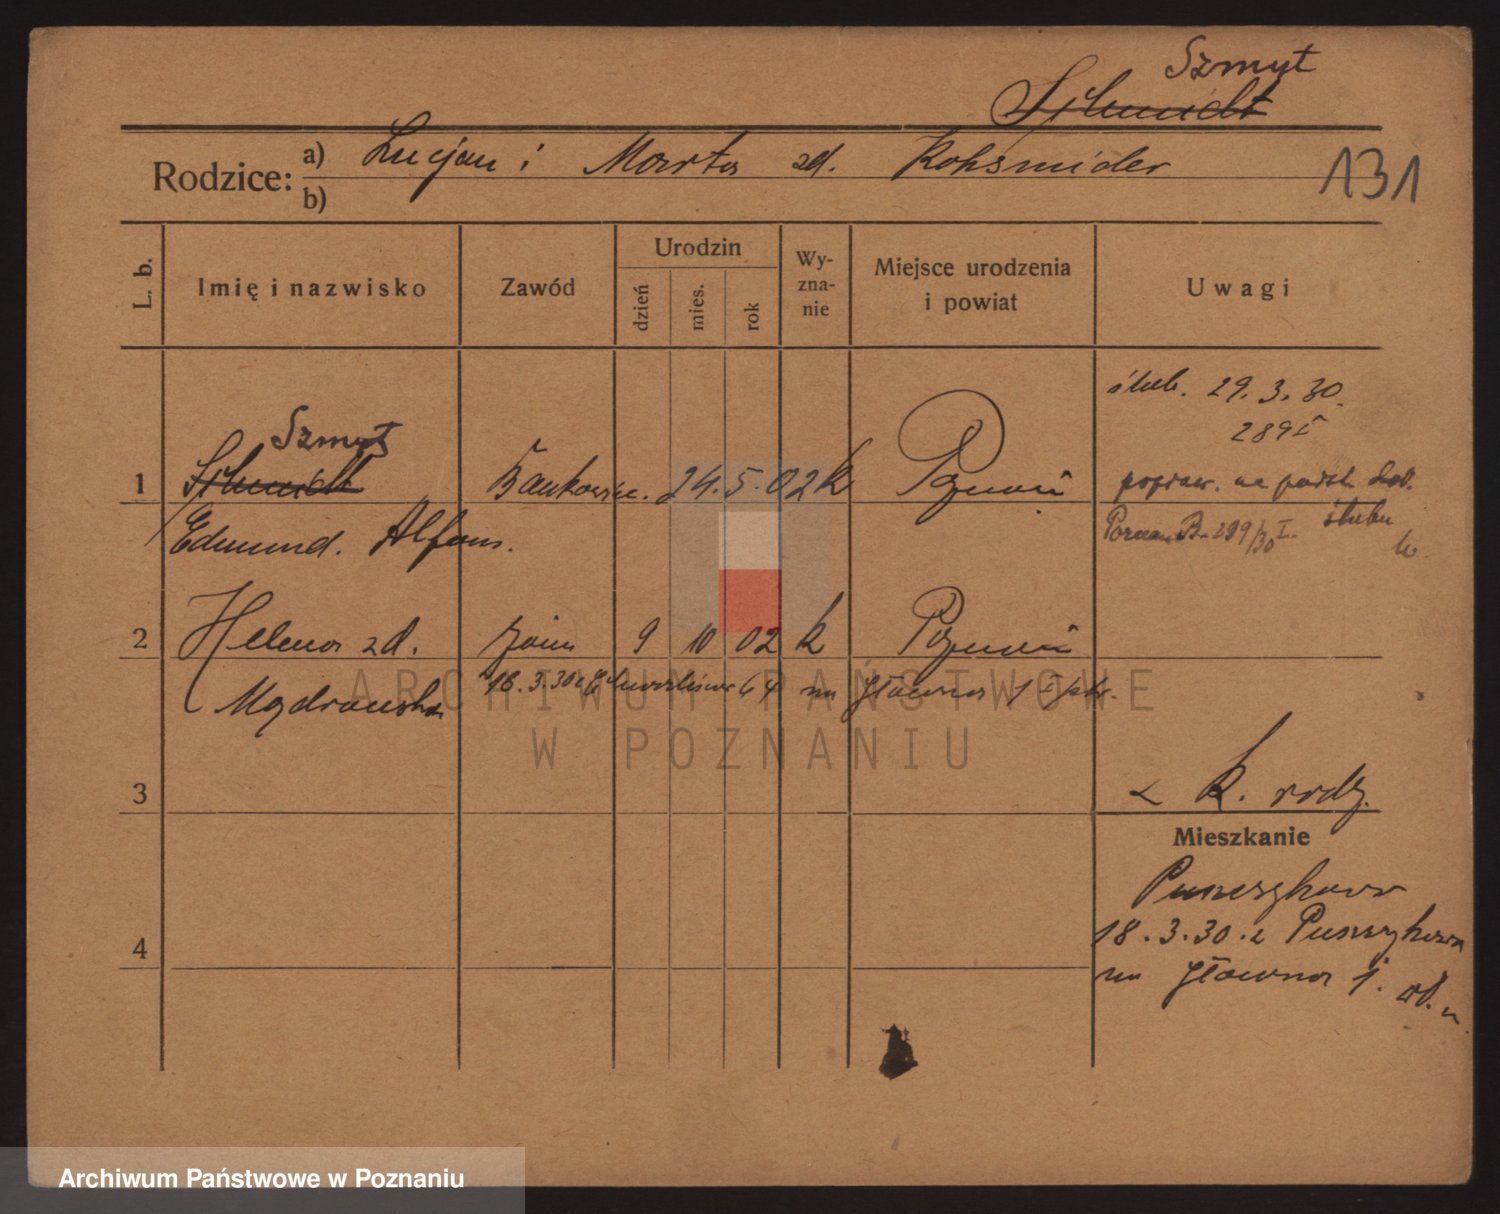 Szmyt
Schmidt
Rodzice: a) Lucjan i Marta zd. Kohsmider
b)
131
L. b.
Imię i nazwisko
Zawód
Urodzin
dzień
mies.
rok
Wy-
zna-
nie
Miejsce urodzenia
i powiat
Uwagi
ślub. 29.3.30.
289 I
Szmyt
1 Schmidt Bankowiec. 24. 5. 02 k Poznań
popraw. na podst. dok.
ślubu
Poznań 289/30 I.
Edmund. Alfons.
2 Helena zd. 9 10 02 k Poznań
18.3.30 z 64 na Główna 1 I ptr.
Mądrawska
3
z k. rodz.
Mieszkanie
4
18.3.30. z
na Główna 1.
ARCHIWUM PAŃSTWOWE
W POZNANIU
Archiwum Państwowe w Poznaniu